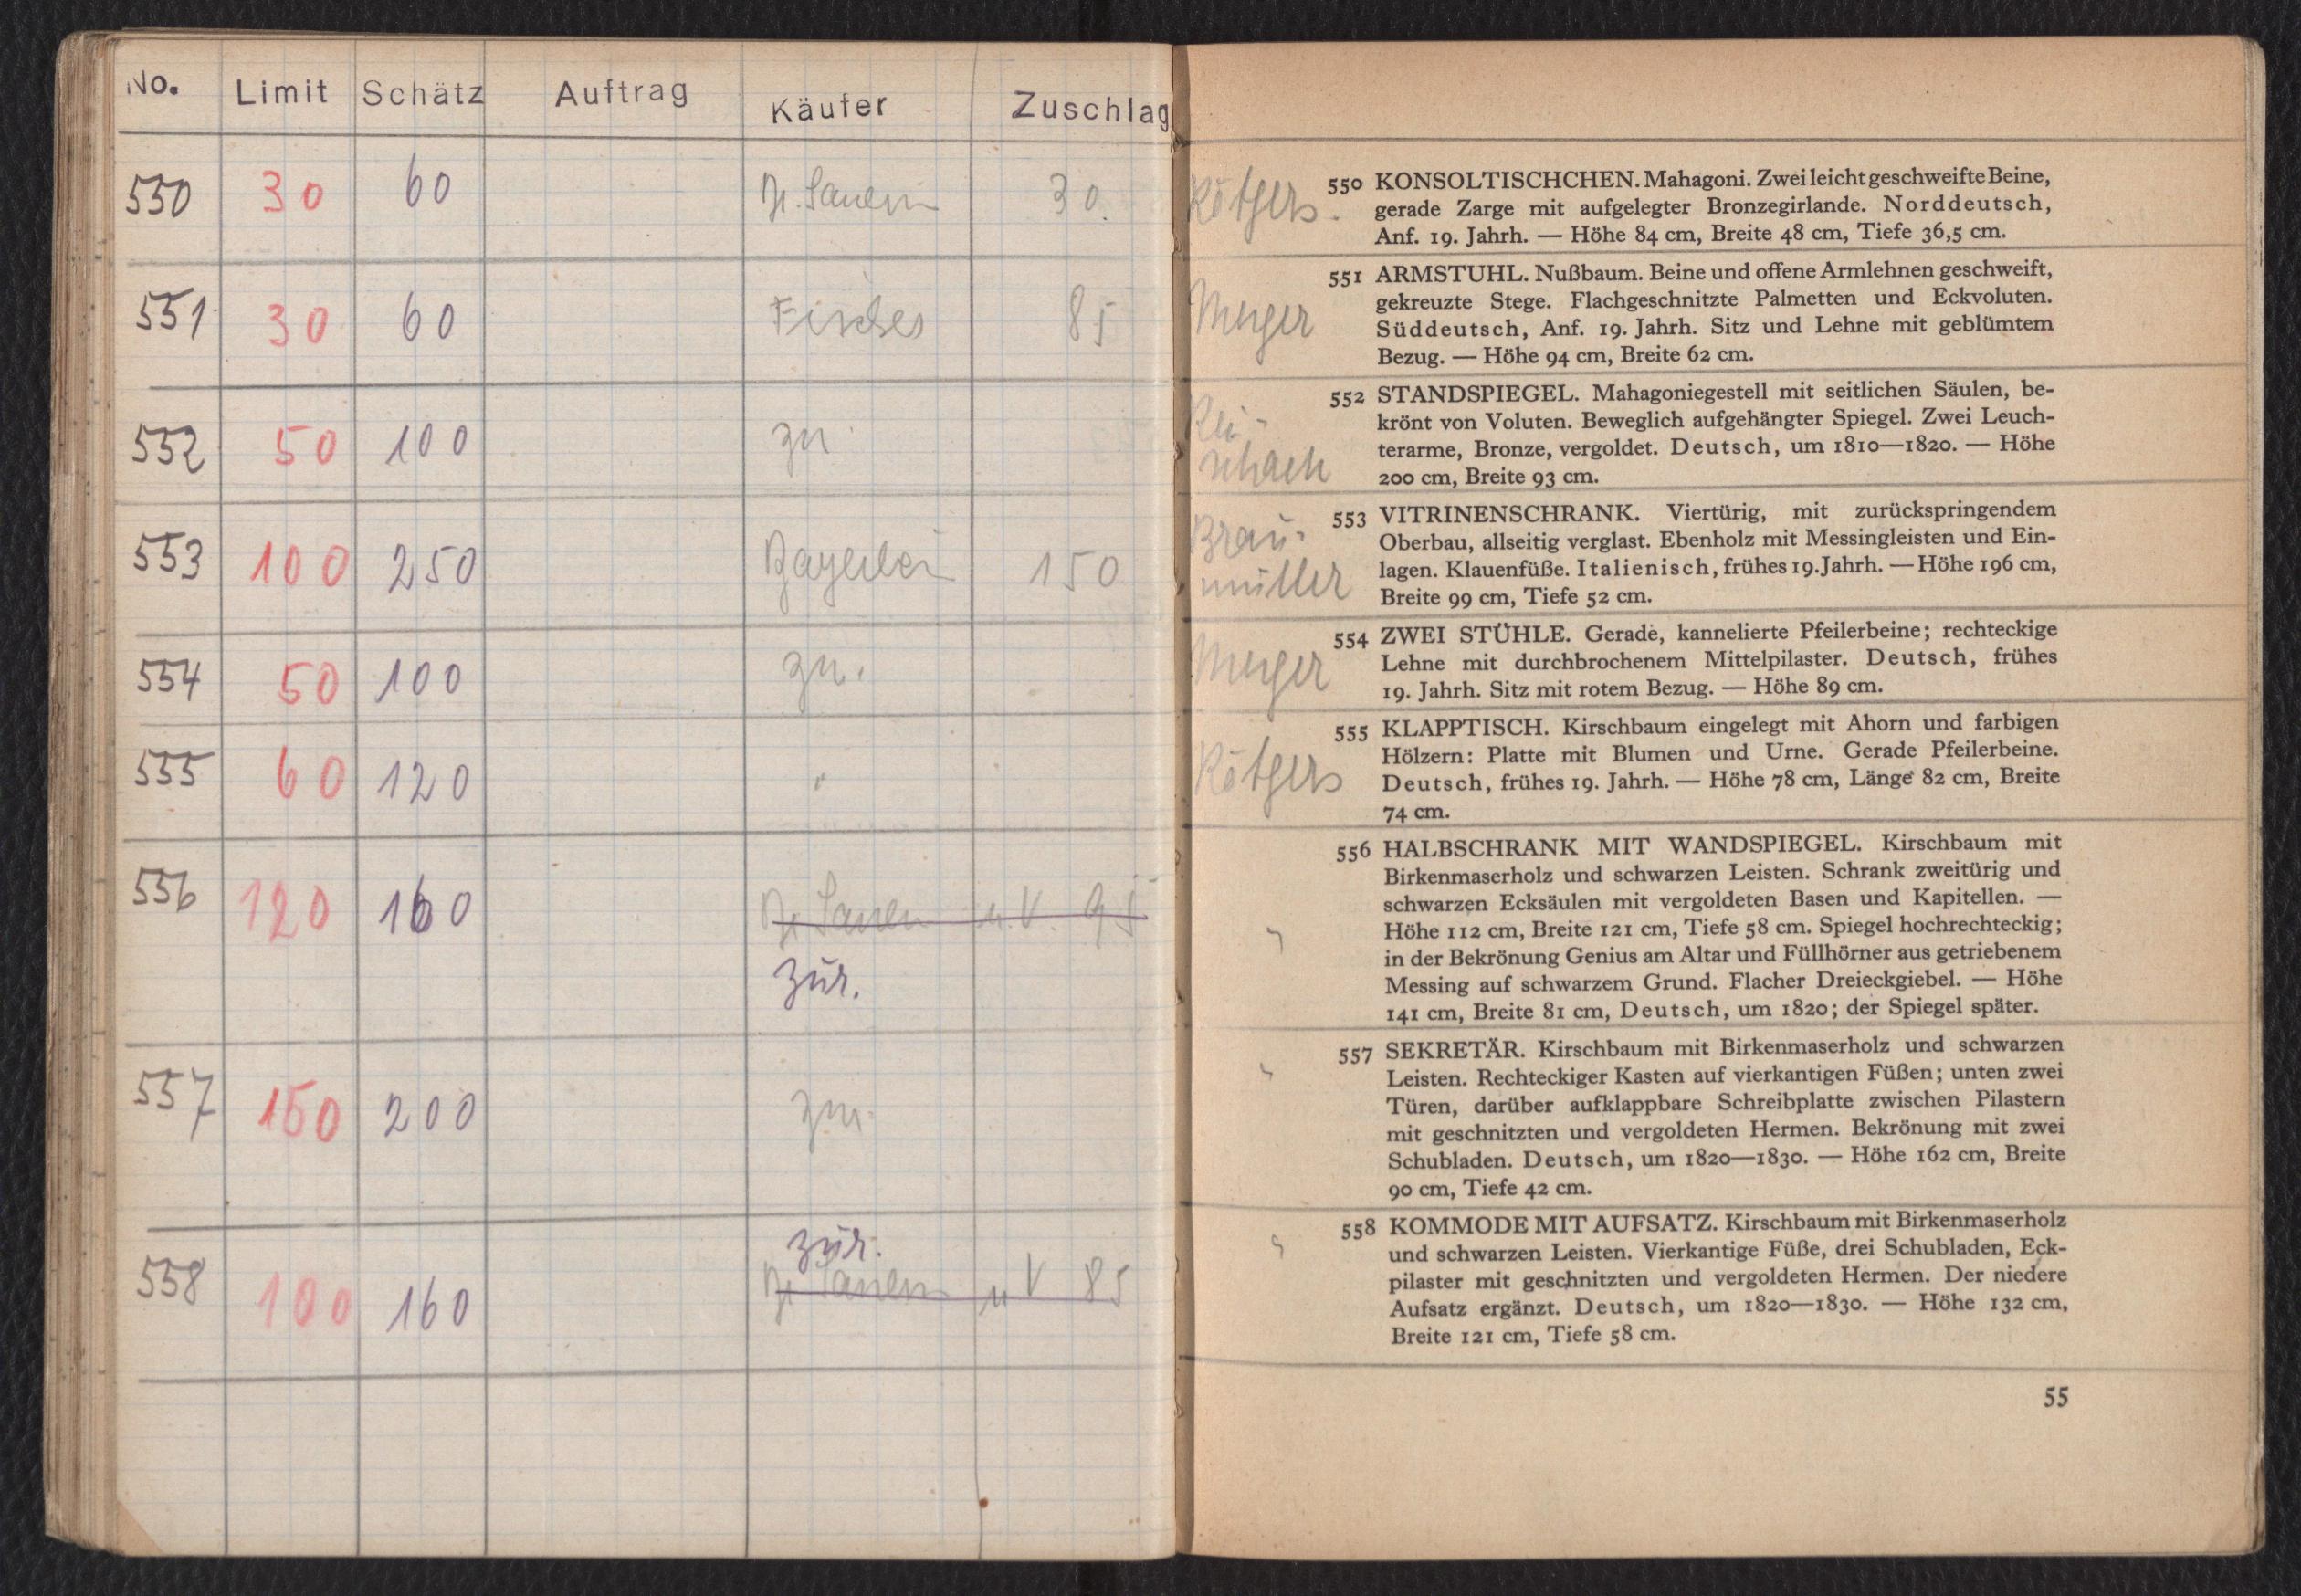 No. Limit Schätz Auftrag Käufer Zuschlag
550 30 60 30.
551 30 60 Fischer 85
552 50 100 zur.
553 100 250 150
554 50 100 zur.
555 60 120 "
556 120 160 u. V. 95
zur.
557 150 200 zur.
zur.
558 100 160 u V 85
Rötgers. 550 KONSOLTISCHCHEN. Mahagoni. Zwei leicht geschweifte Beine,
gerade Zarge mit aufgelegter Bronzegirlande. Norddeutsch,
Anf. 19. Jahrh. — Höhe 84 cm, Breite 48 cm, Tiefe 36,5 cm.
551 ARMSTUHL. Nußbaum. Beine und offene Armlehnen geschweift,
gekreuzte Stege. Flachgeschnitzte Palmetten und Eckvoluten.
Süddeutsch, Anf. 19. Jahrh. Sitz und Lehne mit geblümtem
Bezug. — Höhe 94 cm, Breite 62 cm.
552 STANDSPIEGEL. Mahagoniegestell mit seitlichen Säulen, be-
krönt von Voluten. Beweglich aufgehängter Spiegel. Zwei Leuch-
terarme, Bronze, vergoldet. Deutsch, um 1810—1820. — Höhe
200 cm, Breite 93 cm.
Brau- 553 VITRINENSCHRANK. Viertürig, mit zurückspringendem
Oberbau, allseitig verglast. Ebenholz mit Messingleisten und Ein-
müller lagen. Klauenfüße. Italienisch, frühes 19. Jahrh. — Höhe 196 cm,
Breite 99 cm, Tiefe 52 cm.
554 ZWEI STÜHLE. Gerade, kannelierte Pfeilerbeine; rechteckige
Lehne mit durchbrochenem Mittelpilaster. Deutsch, frühes
19. Jahrh. Sitz mit rotem Bezug. — Höhe 89 cm.
555 KLAPPTISCH. Kirschbaum eingelegt mit Ahorn und farbigen
Hölzern: Platte mit Blumen und Urne. Gerade Pfeilerbeine.
Rötgers Deutsch, frühes 19. Jahrh. — Höhe 78 cm, Länge 82 cm, Breite
74 cm.
556 HALBSCHRANK MIT WANDSPIEGEL. Kirschbaum mit
Birkenmaserholz und schwarzen Leisten. Schrank zweitürig und
schwarzen Ecksäulen mit vergoldeten Basen und Kapitellen. —
Höhe 112 cm, Breite 121 cm, Tiefe 58 cm. Spiegel hochrechteckig;
in der Bekrönung Genius am Altar und Füllhörner aus getriebenem
Messing auf schwarzem Grund. Flacher Dreieckgiebel. — Höhe
141 cm, Breite 81 cm, Deutsch, um 1820; der Spiegel später.
557 SEKRETÄR. Kirschbaum mit Birkenmaserholz und schwarzen
Leisten. Rechteckiger Kasten auf vierkantigen Füßen; unten zwei
Türen, darüber aufklappbare Schreibplatte zwischen Pilastern
mit geschnitzten und vergoldeten Hermen. Bekrönung mit zwei
Schubladen. Deutsch, um 1820—1830. — Höhe 162 cm, Breite
90 cm, Tiefe 42 cm.
558 KOMMODE MIT AUFSATZ. Kirschbaum mit Birkenmaserholz
und schwarzen Leisten. Vierkantige Füße, drei Schubladen, Eck-
pilaster mit geschnitzten und vergoldeten Hermen. Der niedere
Aufsatz ergänzt. Deutsch, um 1820—1830. — Höhe 132 cm,
Breite 121 cm, Tiefe 58 cm.
55